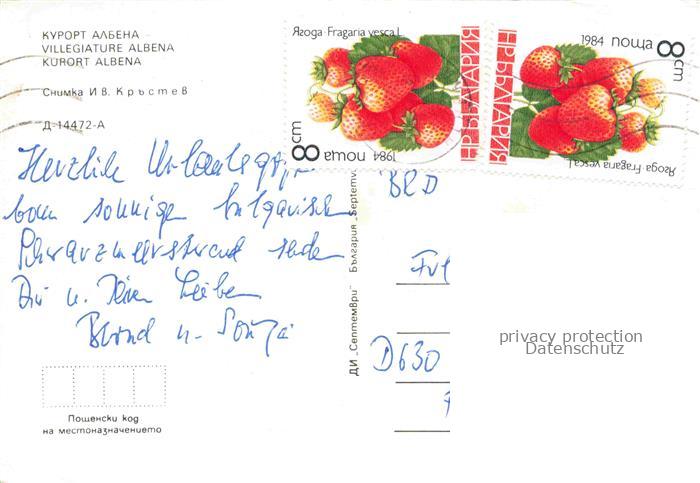 КУРОРТ АЛБЕНА
VILLEGIATURE ALBENA
KURORT ALBENA
Снимка Ив. Кръстев
Д-14472-А
Ягода·Fragaria vesca L.
8cm
поща 1984
НР БЪЛГАРИЯ
1984 поща
8cm
НР БЪЛГАРИЯ
Ягода Fragaria vesca L.
Herzliche Urlaubsgrüße
vom sonnigen bulgarischen
Schwarzmeerstrand senden
Dir u. Deinen Lieben
Bernd u.
BRD
D630
ДИ „Септември" България „Septemvri
privacy protection
Datenschutz
Пощенски код
на местоназначението